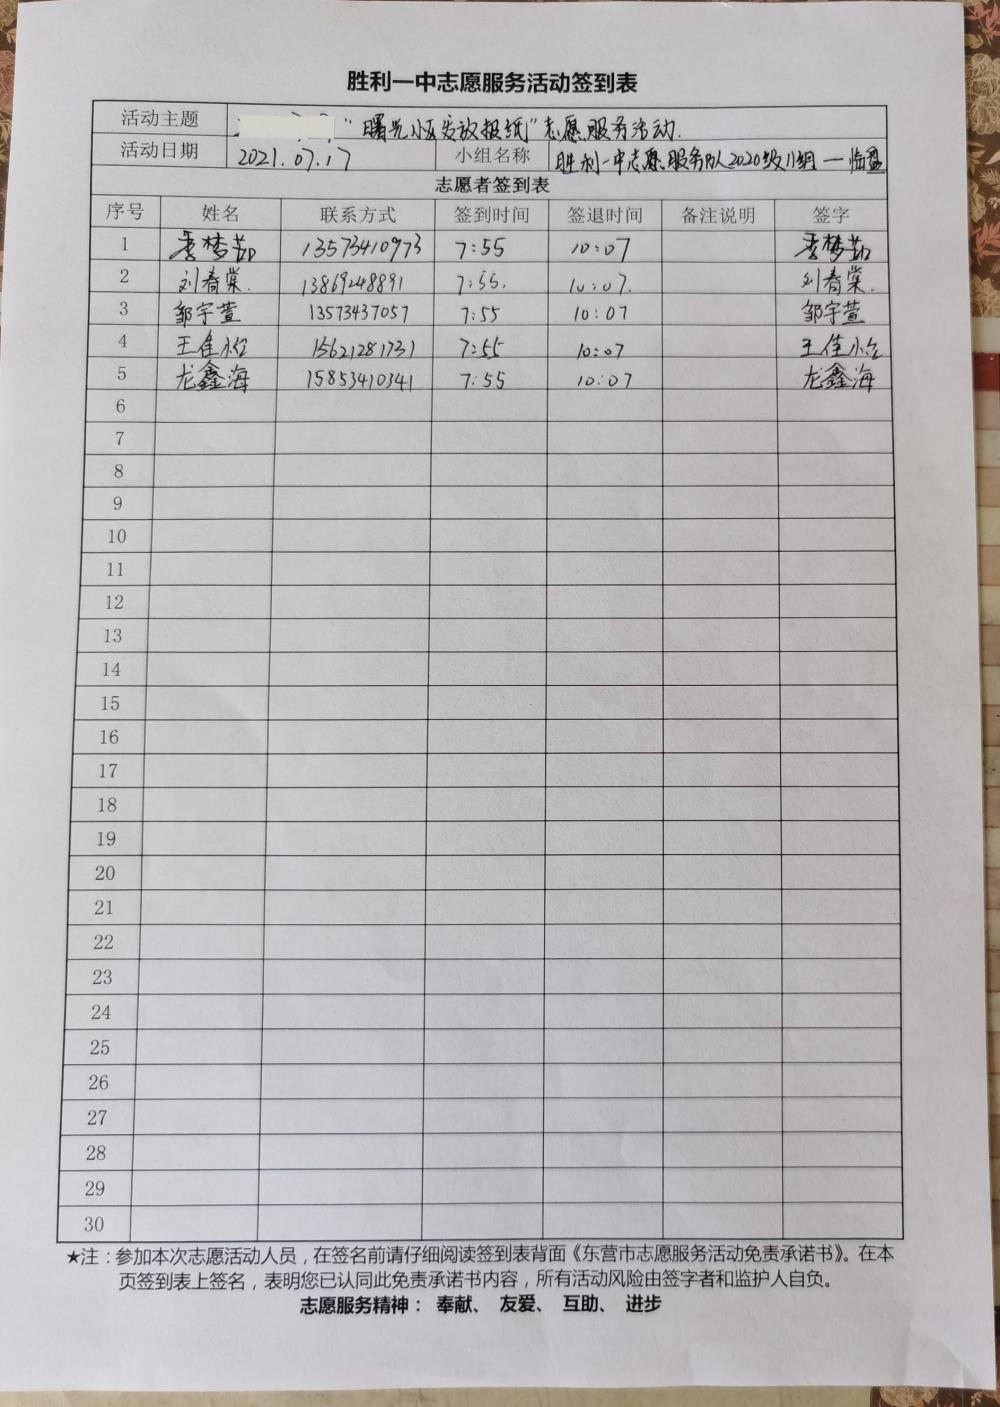 胜利一中志愿服务活动签到表
活动主题 "曙光小区发放报纸"志愿服务活动.
活动日期 2021.07.17 小组名称 胜利一中志愿服务队2020级11组—临盘
志愿者签到表
序号 姓名 联系方式 签到时间 签退时间 备注说明 签字
1 季梦茹 13573410973 7:55 10:07 季梦茹
2 刘春棠. 13869248891 7:55. 10:07. 刘春棠.
3 邹宇萱 13573437057 7:55 10:07 邹宇萱
4 王佳怡 15621281731 7:55 10:07 王佳怡
5 龙鑫海 15853410341 7:55 10:07 龙鑫海
6
7
8
9
10
11
12
13
14
15
16
17
18
19
20
21
22
23
24
25
26
27
28
29
30
★注：参加本次志愿活动人员，在签名前请仔细阅读签到表背面《东营市志愿服务活动免责承诺书》。在本
页签到表上签名，表明您已认同此免责承诺书内容，所有活动风险由签字者和监护人自负。
志愿服务精神： 奉献、 友爱、 互助、 进步